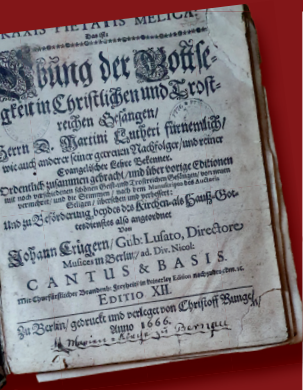 PRAXIS PIETATIS MELICA.
Das ist:
Ubung der Gottse-
ligkeit in Christlichen und Trost-
reichen Gesängen/
Herrn D. Martini Lutheri fürnemlich/
wie auch anderer seiner getreuen Nachfolger/ und reiner
Evangelischer Lehre Bekenner.
Ordentlich zusammen gebracht/ und über vorige Editionen
mit noch verschiedenen schönen Geist- und Trostreichen Gesängen/ von neuen
vermehret/ und die Stimmen nach dem Manuscripto des Auctoris
Seligen/ übersehen und verbessert:
Und zu Beförderung beydes des Kirchen- als Hauß-Got-
tesdienstes also angeordnet
Von
Johann Crügern/ Gub: Lusato, Directore
Musices in Berlin/ ad Div. Nicol:
CANTUS & BASIS.
Churfürstlicher Brandenb: Freyheit
EDITIO XII.
Zu Berlin/ gedruckt und verleget von Christoff Runge/
Anno 1666.
zu Bernau